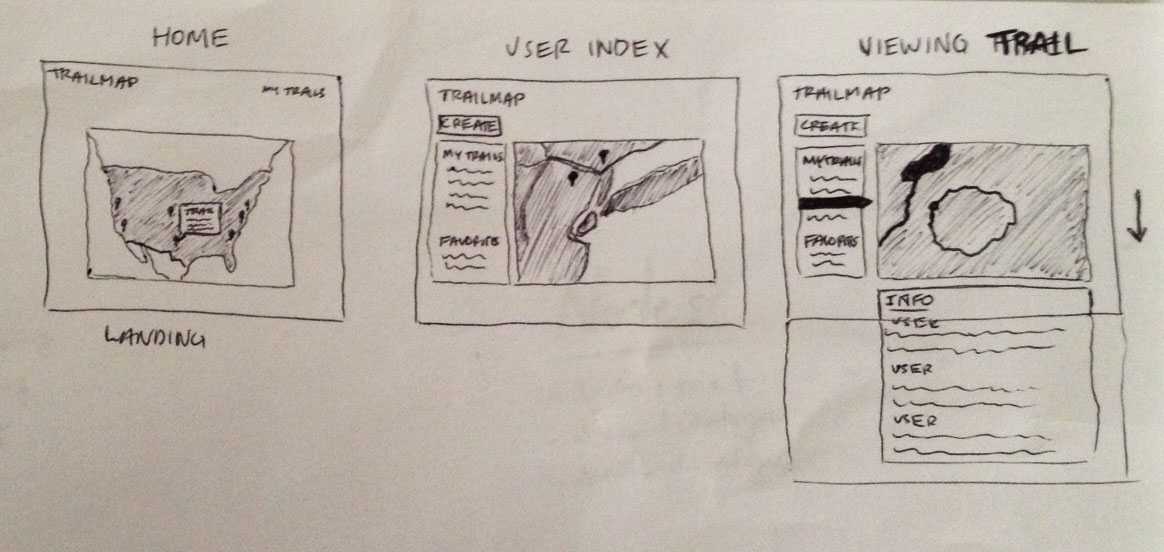 HOME
TRAILMAP
MY TRAILS
TRAIL
LANDING
USER INDEX
TRAILMAP
CREATE
MY TRAILS
FAVORITE
VIEWING TRAIL
TRAILMAP
CREATE
MY TRAILS
FAVORITES
INFO
USER
USER
USER